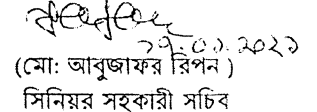 (মো: আবুজাফর রিপন )
সিনিয়র সহকারী সচিব